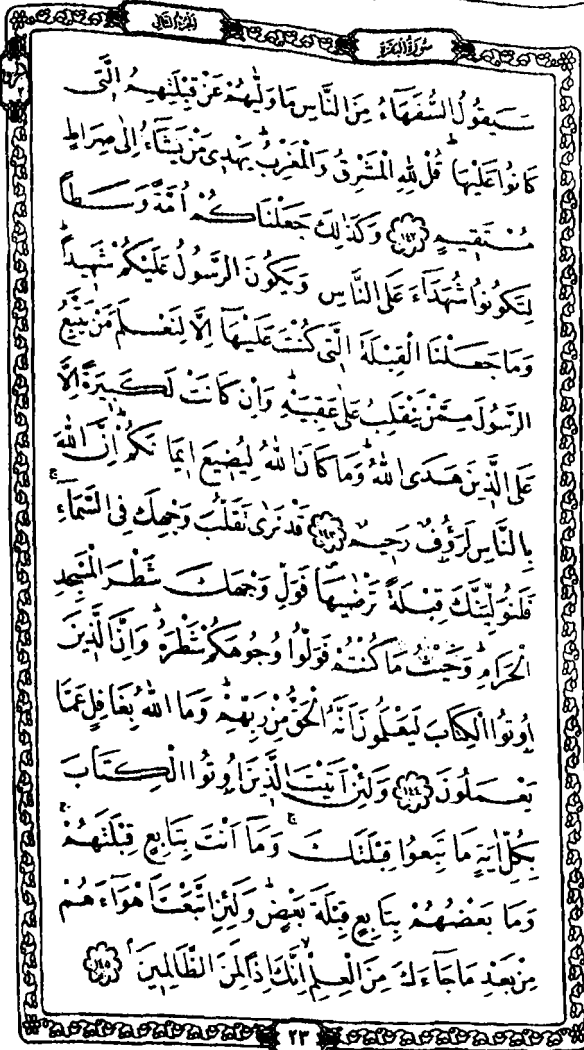 سُورَةُ الْبَقَرَةِ
الجزء الثانى
سَيَقُولُ السُّفَهَاءُ مِنَ النَّاسِ مَا وَلّٰيهُمْ عَنْ قِبْلَتِهِمُ الَّتِى
كَانُوا عَلَيْهَا قُلْ لِلّٰهِ الْمَشْرِقُ وَالْمَغْرِبُ يَهْدِى مَنْ يَشَاءُ اِلٰى صِرَاطٍ
مُسْتَقِيمٍ ﴿١٤٢﴾ وَكَذٰلِكَ جَعَلْنَاكُمْ اُمَّةً وَسَطًا
لِتَكُونُوا شُهَدَاءَ عَلَى النَّاسِ وَيَكُونَ الرَّسُولُ عَلَيْكُمْ شَهِيدًا
وَمَا جَعَلْنَا الْقِبْلَةَ الَّتِى كُنْتَ عَلَيْهَا اِلَّا لِنَعْلَمَ مَنْ يَتَّبِعُ
الرَّسُولَ مِمَّنْ يَنْقَلِبُ عَلٰى عَقِبَيْهِ وَاِنْ كَانَتْ لَكَبِيرَةً اِلَّا
عَلَى الَّذِينَ هَدَى اللّٰهُ وَمَا كَانَ اللّٰهُ لِيُضِيعَ اِيمَانَكُمْ اِنَّ اللّٰهَ
بِالنَّاسِ لَرَؤُفٌ رَحِيمٌ ﴿١٤٣﴾ قَدْ نَرٰى تَقَلُّبَ وَجْهِكَ فِى السَّمَاءِ
فَلَنُوَلِّيَنَّكَ قِبْلَةً تَرْضٰيهَا فَوَلِّ وَجْهَكَ شَطْرَ الْمَسْجِدِ
الْحَرَامِ وَحَيْثُ مَا كُنْتُمْ فَوَلُّوا وُجُوهَكُمْ شَطْرَهُ وَاِنَّ الَّذِينَ
اُوتُوا الْكِتَابَ لَيَعْلَمُونَ اَنَّهُ الْحَقُّ مِنْ رَبِّهِمْ وَمَا اللّٰهُ بِغَافِلٍ عَمَّا
يَعْمَلُونَ ﴿١٤٤﴾ وَلَئِنْ اَتَيْتَ الَّذِينَ اُوتُوا الْكِتَابَ
بِكُلِّ اٰيَةٍ مَا تَبِعُوا قِبْلَتَكَ وَمَا اَنْتَ بِتَابِعٍ قِبْلَتَهُمْ
وَمَا بَعْضُهُمْ بِتَابِعٍ قِبْلَةَ بَعْضٍ وَلَئِنِ اتَّبَعْتَ اَهْوَاءَهُمْ
مِنْ بَعْدِ مَا جَاءَكَ مِنَ الْعِلْمِ اِنَّكَ اِذًا لَمِنَ الظَّالِمِينَ ﴿١٤٥﴾
٢٣